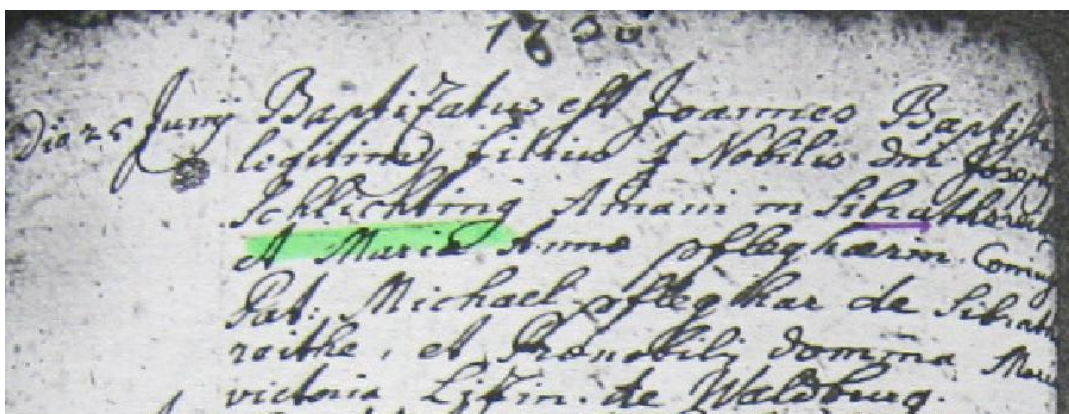 1730
Die 25 Junij Baptizatus est Joannes Baptista
legitimus filius Nobilis dni Joseph
Schlichting Amani in Sibrathsreith
et Mariæ Annæ pflegharin Coniug
Pat: Michael pfleghar de Sibraths
reithe, et Prænobilj domina Maria
victoria de Waldburg.